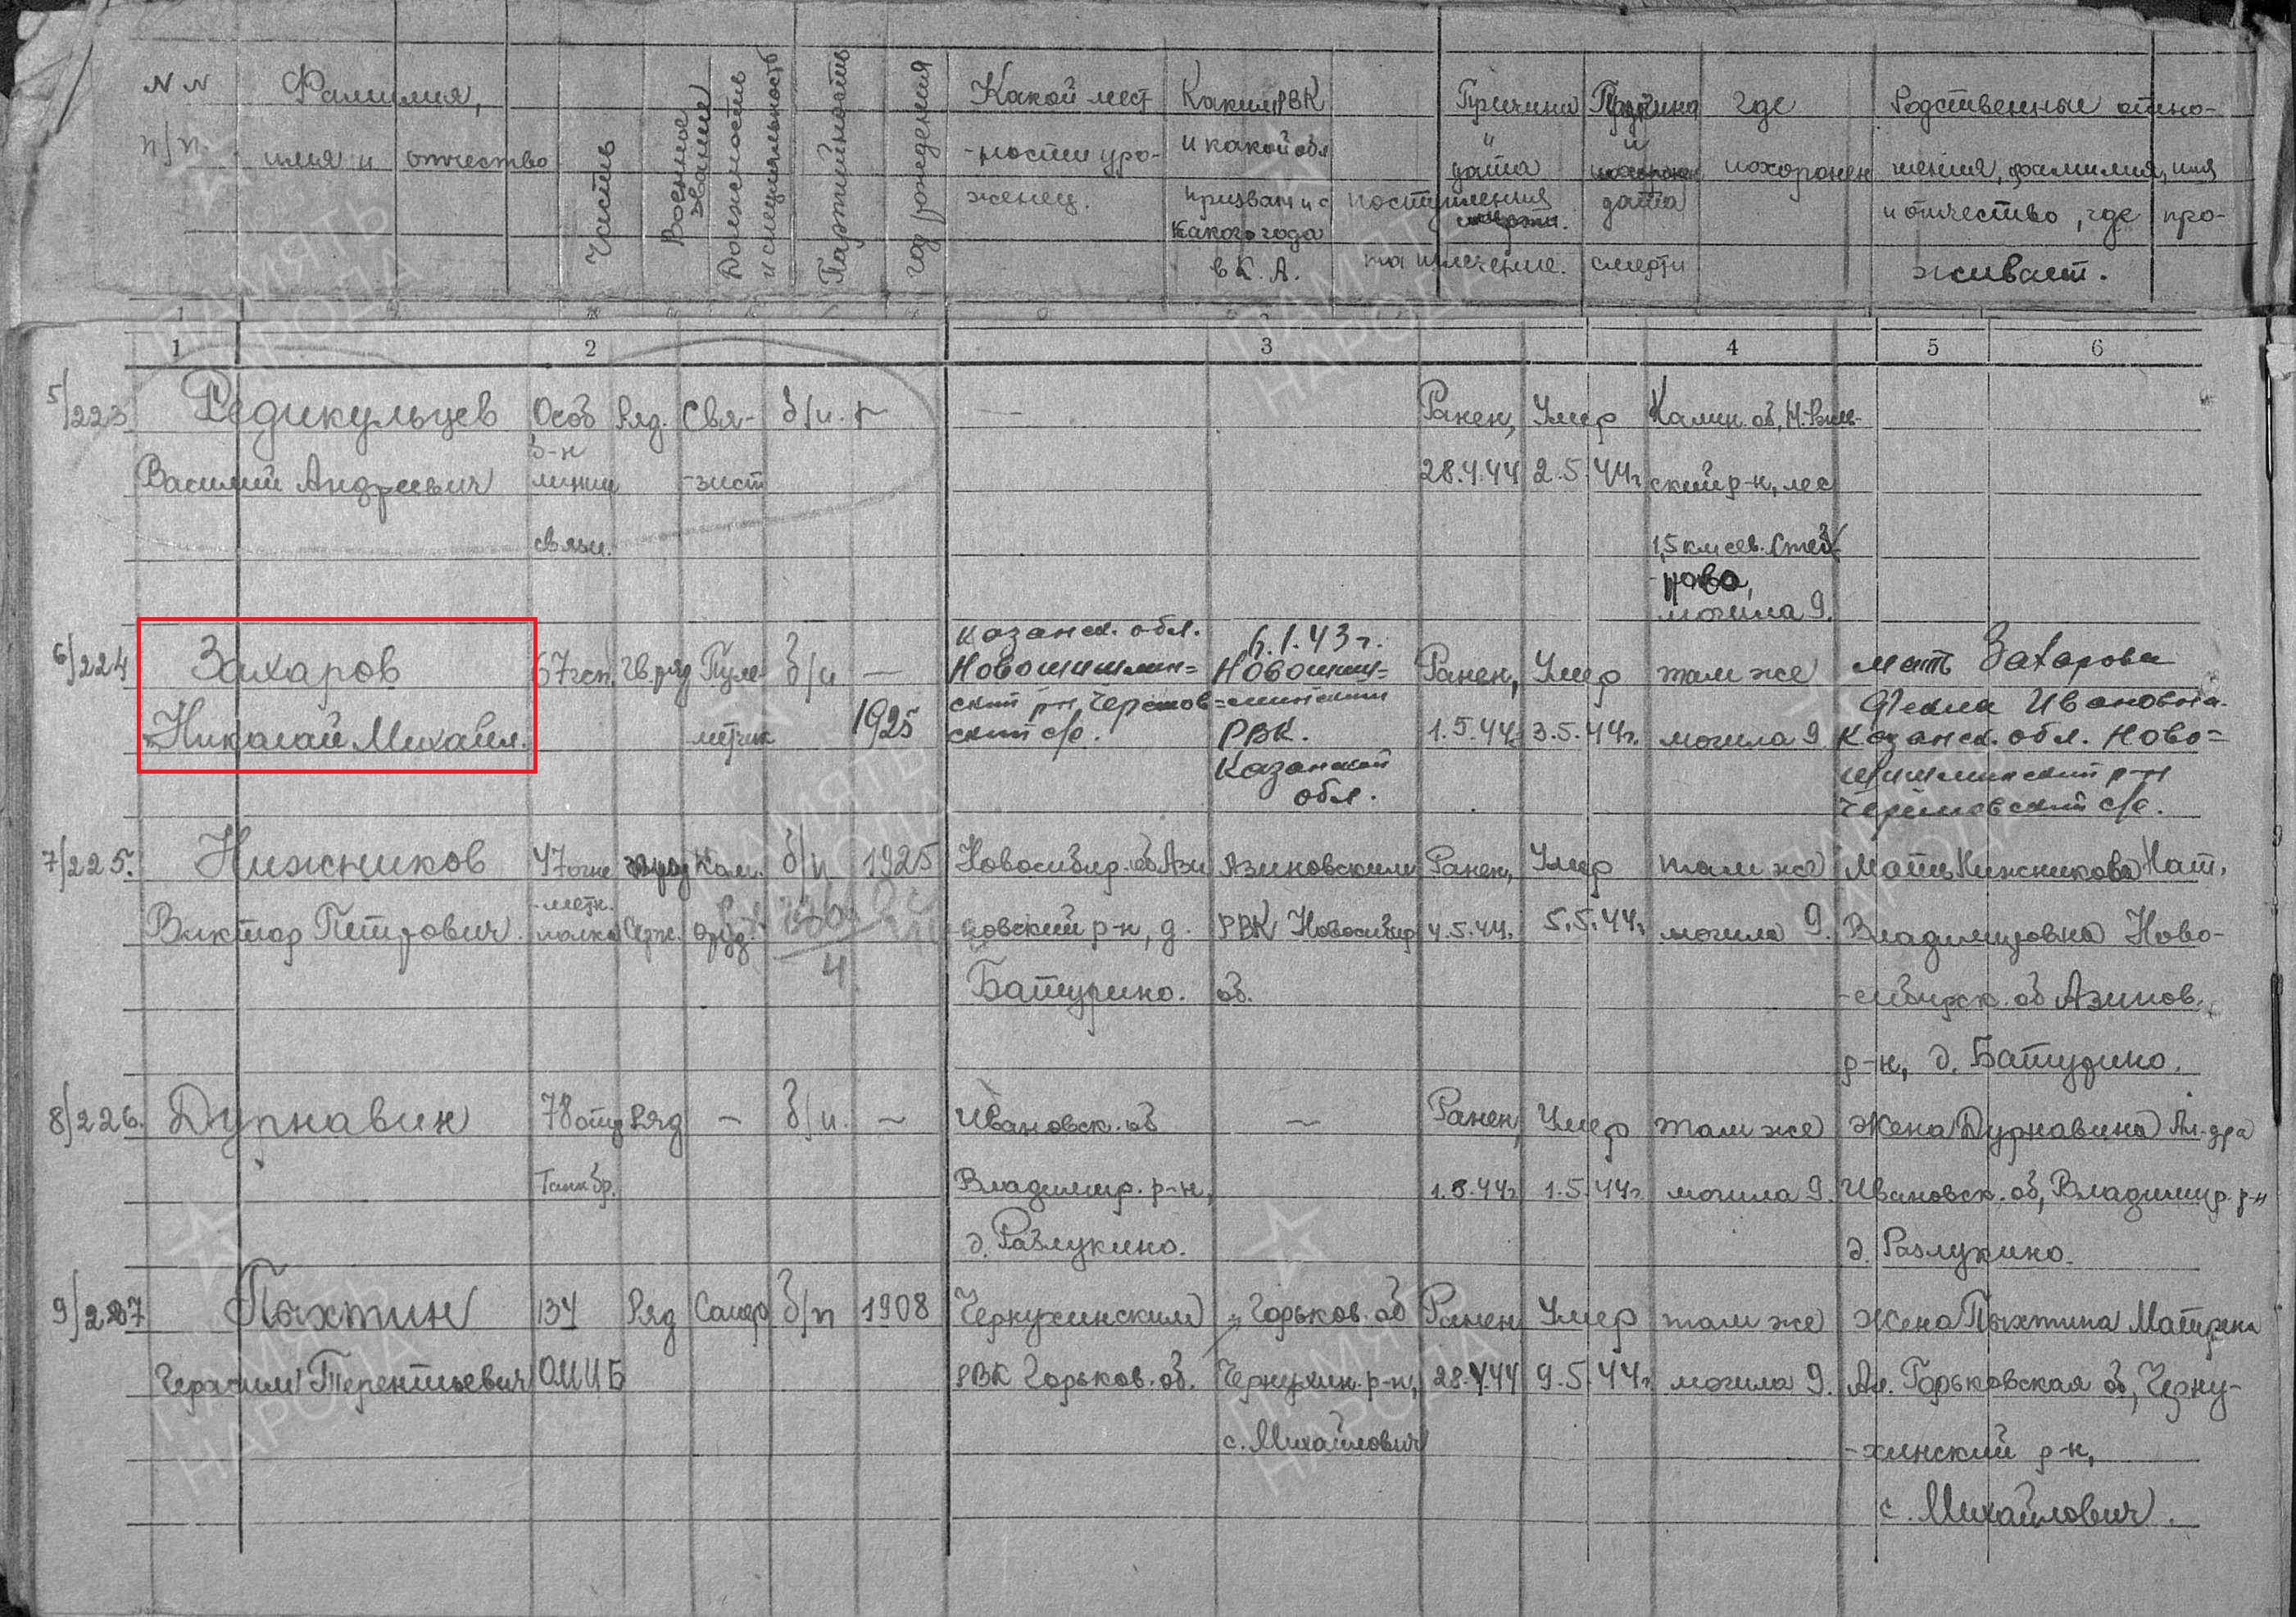 N N
п/п.
Фамилия,
имя и отчество
Часть
Военное звание
Должность и специальность
Партийность
год рождения
Какой мест
-ности уро-
женец.
Каким РВК
и какой обл
призван и с
какого года
в К. А.
Причина
и
дата
поступления
на излечение.
Причина
и
дата
смерти
где
похоронен
Родственные отно-
шения, фамилия, имя
и отчество, где про-
живает.
1 2 3 4 5 6
5/223 Редикульцев Особ Ряд. Свя- б/п. Ранен, Умер Калин. об,
Василий Андреевич линии -зист 28.4.44 2.5.44г. ский р-н, лес
связи. 1,5 км сев.
-ново,
могила 9.
6/224 Захаров Гв. ряд Пуле- б/п — Казанск. обл. 6.1.43г. Ранен, Умер там же мать Захарова
Николай Михайл. метчик 1925 Новошишмин= Новошиш= 1.5.44г. 3.5.44г. могила 9 Фекла Ивановна.
ский р-н, =минский Казанск. обл. Ново=
ский с/с. РВК. шишминский р-н
Казанской с/с.
обл.
7/225. Нижников Ком. б/п 1925 Новосибир. об Ази Азиновским Ранен, Умер там же Мать Нижникова Нат.
Виктор Петрович. полка Серж. Оруд. -новский р-н, д. РВК Новосибир 4.5.44. 5.5.44г. могила 9. Владимировна Ново-
Батурино. об. -сибирск. об Азинов.
р-н, д. Батурино.
8/226. Дурнавин Ряд — б/п. — Ивановск. об — Ранен, Умер там же Жена Дурнавина Ал-дра
Танк бр. Владимир. р-н, 1.5.44г. могила 9. Ивановск. об, Владимир. р-н
д. Разлукино. д. Разлукино.
9/227 Пыхтин 134 Ряд Сапер б/п 1908 Чернухинским Горьков. об Ранен Умер там же Жена Пыхтина Матрена
Герасим Терентьевич ОМИБ РВК Горьков. об. Чернухин. р-н, 28.4.44 9.5.44г. могила 9. Ал. Горьковская об, Черну-
с. Михайлович -хинский р-н,
с. Михайлович.
ПАМЯТЬ
НАРОДА